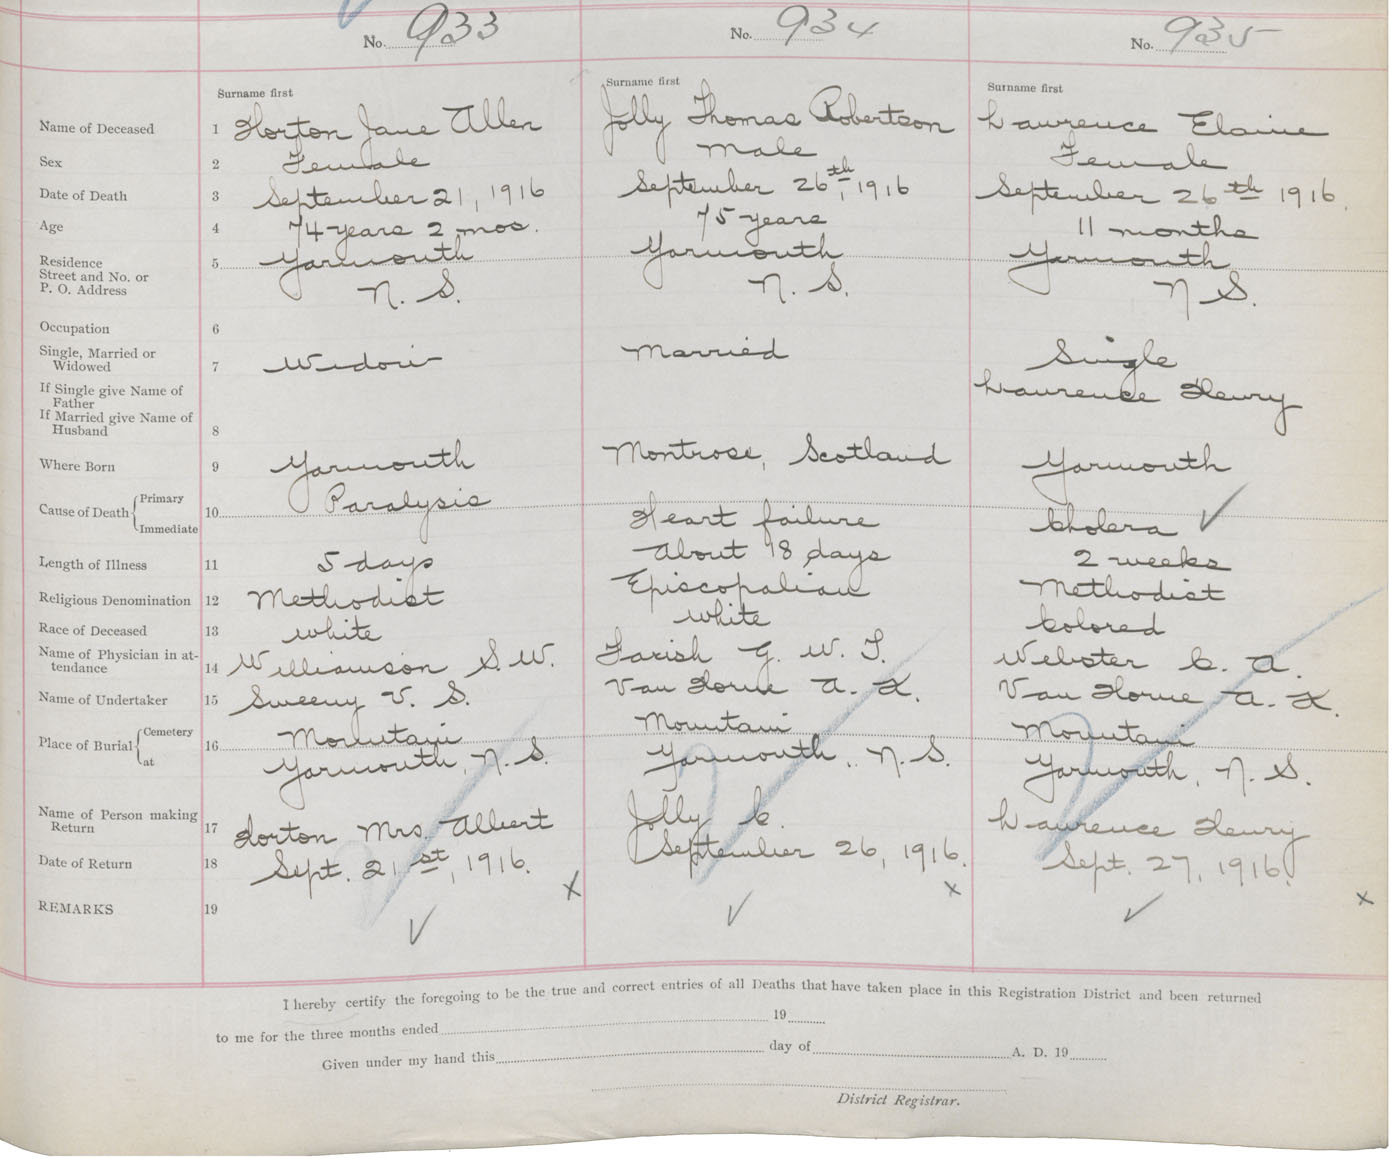 No. 933 No. 934 No. 935
Surname first Surname first Surname first
Name of Deceased 1 Horton Jane Allen Jolly Thomas Robertson Lawrence Elaine
Sex 2 Female Male Female
Date of Death 3 September 21, 1916 September 26th, 1916 September 26th 1916.
Age 4 74 years 2 mos. 75 years 11 months
Residence 5 Yarmouth Yarmouth Yarmouth
Street and No. or
P. O. Address N. S. N. S. N S.
Occupation 6
Single, Married or
Widowed 7 Widow Married Single
If Single give Name of
Father Lawrence Henry
If Married give Name of
Husband 8
Where Born 9 Yarmouth Montrose, Scotland Yarmouth
Cause of Death Primary Paralysis
10 Heart failure Cholera
Immediate
Length of Illness 11 5 days About 18 days 2 weeks
Religious Denomination 12 Methodist Episcopalian Methodist
Race of Deceased 13 white white Colored
Name of Physician in at-
tendance 14 Williamson S. W. Farish G. W. T. Webster C. A.
Name of Undertaker 15 Sweeny V. S. Van Horne A. K. Van Horne A. K.
Place of Burial Cemetery 16 Mountain Mountain Mountain
at Yarmouth, N. S. Yarmouth, N. S. Yarmouth, N. S.
Name of Person making
Return 17 Horton Mrs. Albert Jolly C. Lawrence Henry
Date of Return 18 Sept. 21st, 1916. September 26, 1916. Sept. 27, 1916.
x x x
REMARKS 19
I hereby certify the foregoing to be the true and correct entries of all Deaths that have taken place in this Registration District and been returned
to me for the three months ended 19
Given under my hand this day of A. D. 19
District Registrar.